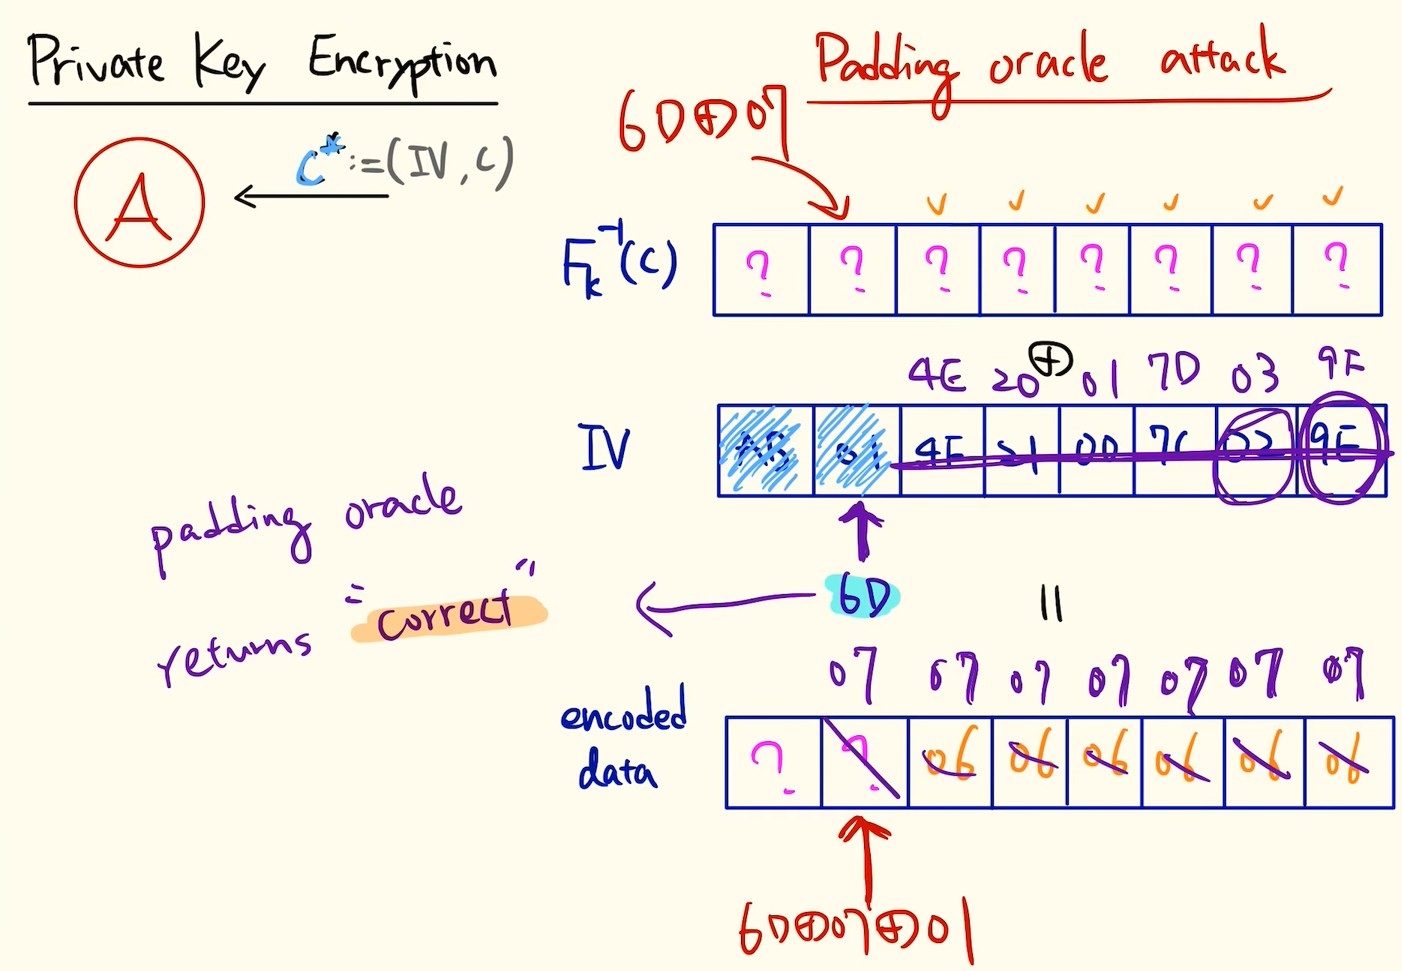 Private Key Encryption
Padding oracle attack
6D⊕07
A
C* := (IV, C)
✓ ✓ ✓ ✓ ✓ ✓
F_k^-1(C) ? ? ? ? ? ? ? ?
⊕
4E 20 01 7D 03 9F
IV AB 01 4F 21 00 7C 02 9E
padding oracle
returns "correct"
6D
=
07 07 07 07 07 07 07
encoded
data
? ? 06 06 06 06 06 06
6D⊕07⊕01